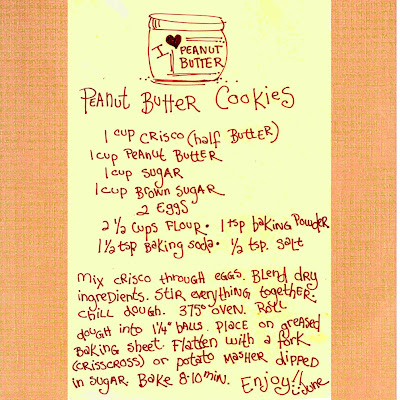 I ♥ PEANUT
BUTTER
PEANUT BUTTER COOKIES
1 cup CRISCO (half BUTTER)
1 cup PEANUT BUTTER
1 cup SUGAR
1 cup BROWN SUGAR
2 EGGS
2 ½ CUPS FLOUR • 1 tsp bakiNG Powder
1 ½ tsp Baking soda • ½ tsp. salt
Mix CRISCO through eggs. Blend dry
ingredients. Stir everything together.
Chill dough. 375° oven. Roll
dough into 1¼" balls. Place on greased
Baking sheet. Flatten with a fork
(CRISSCROSS) or potato masher dipped
in sugar. Bake 8-10 min. Enjoy!!
June